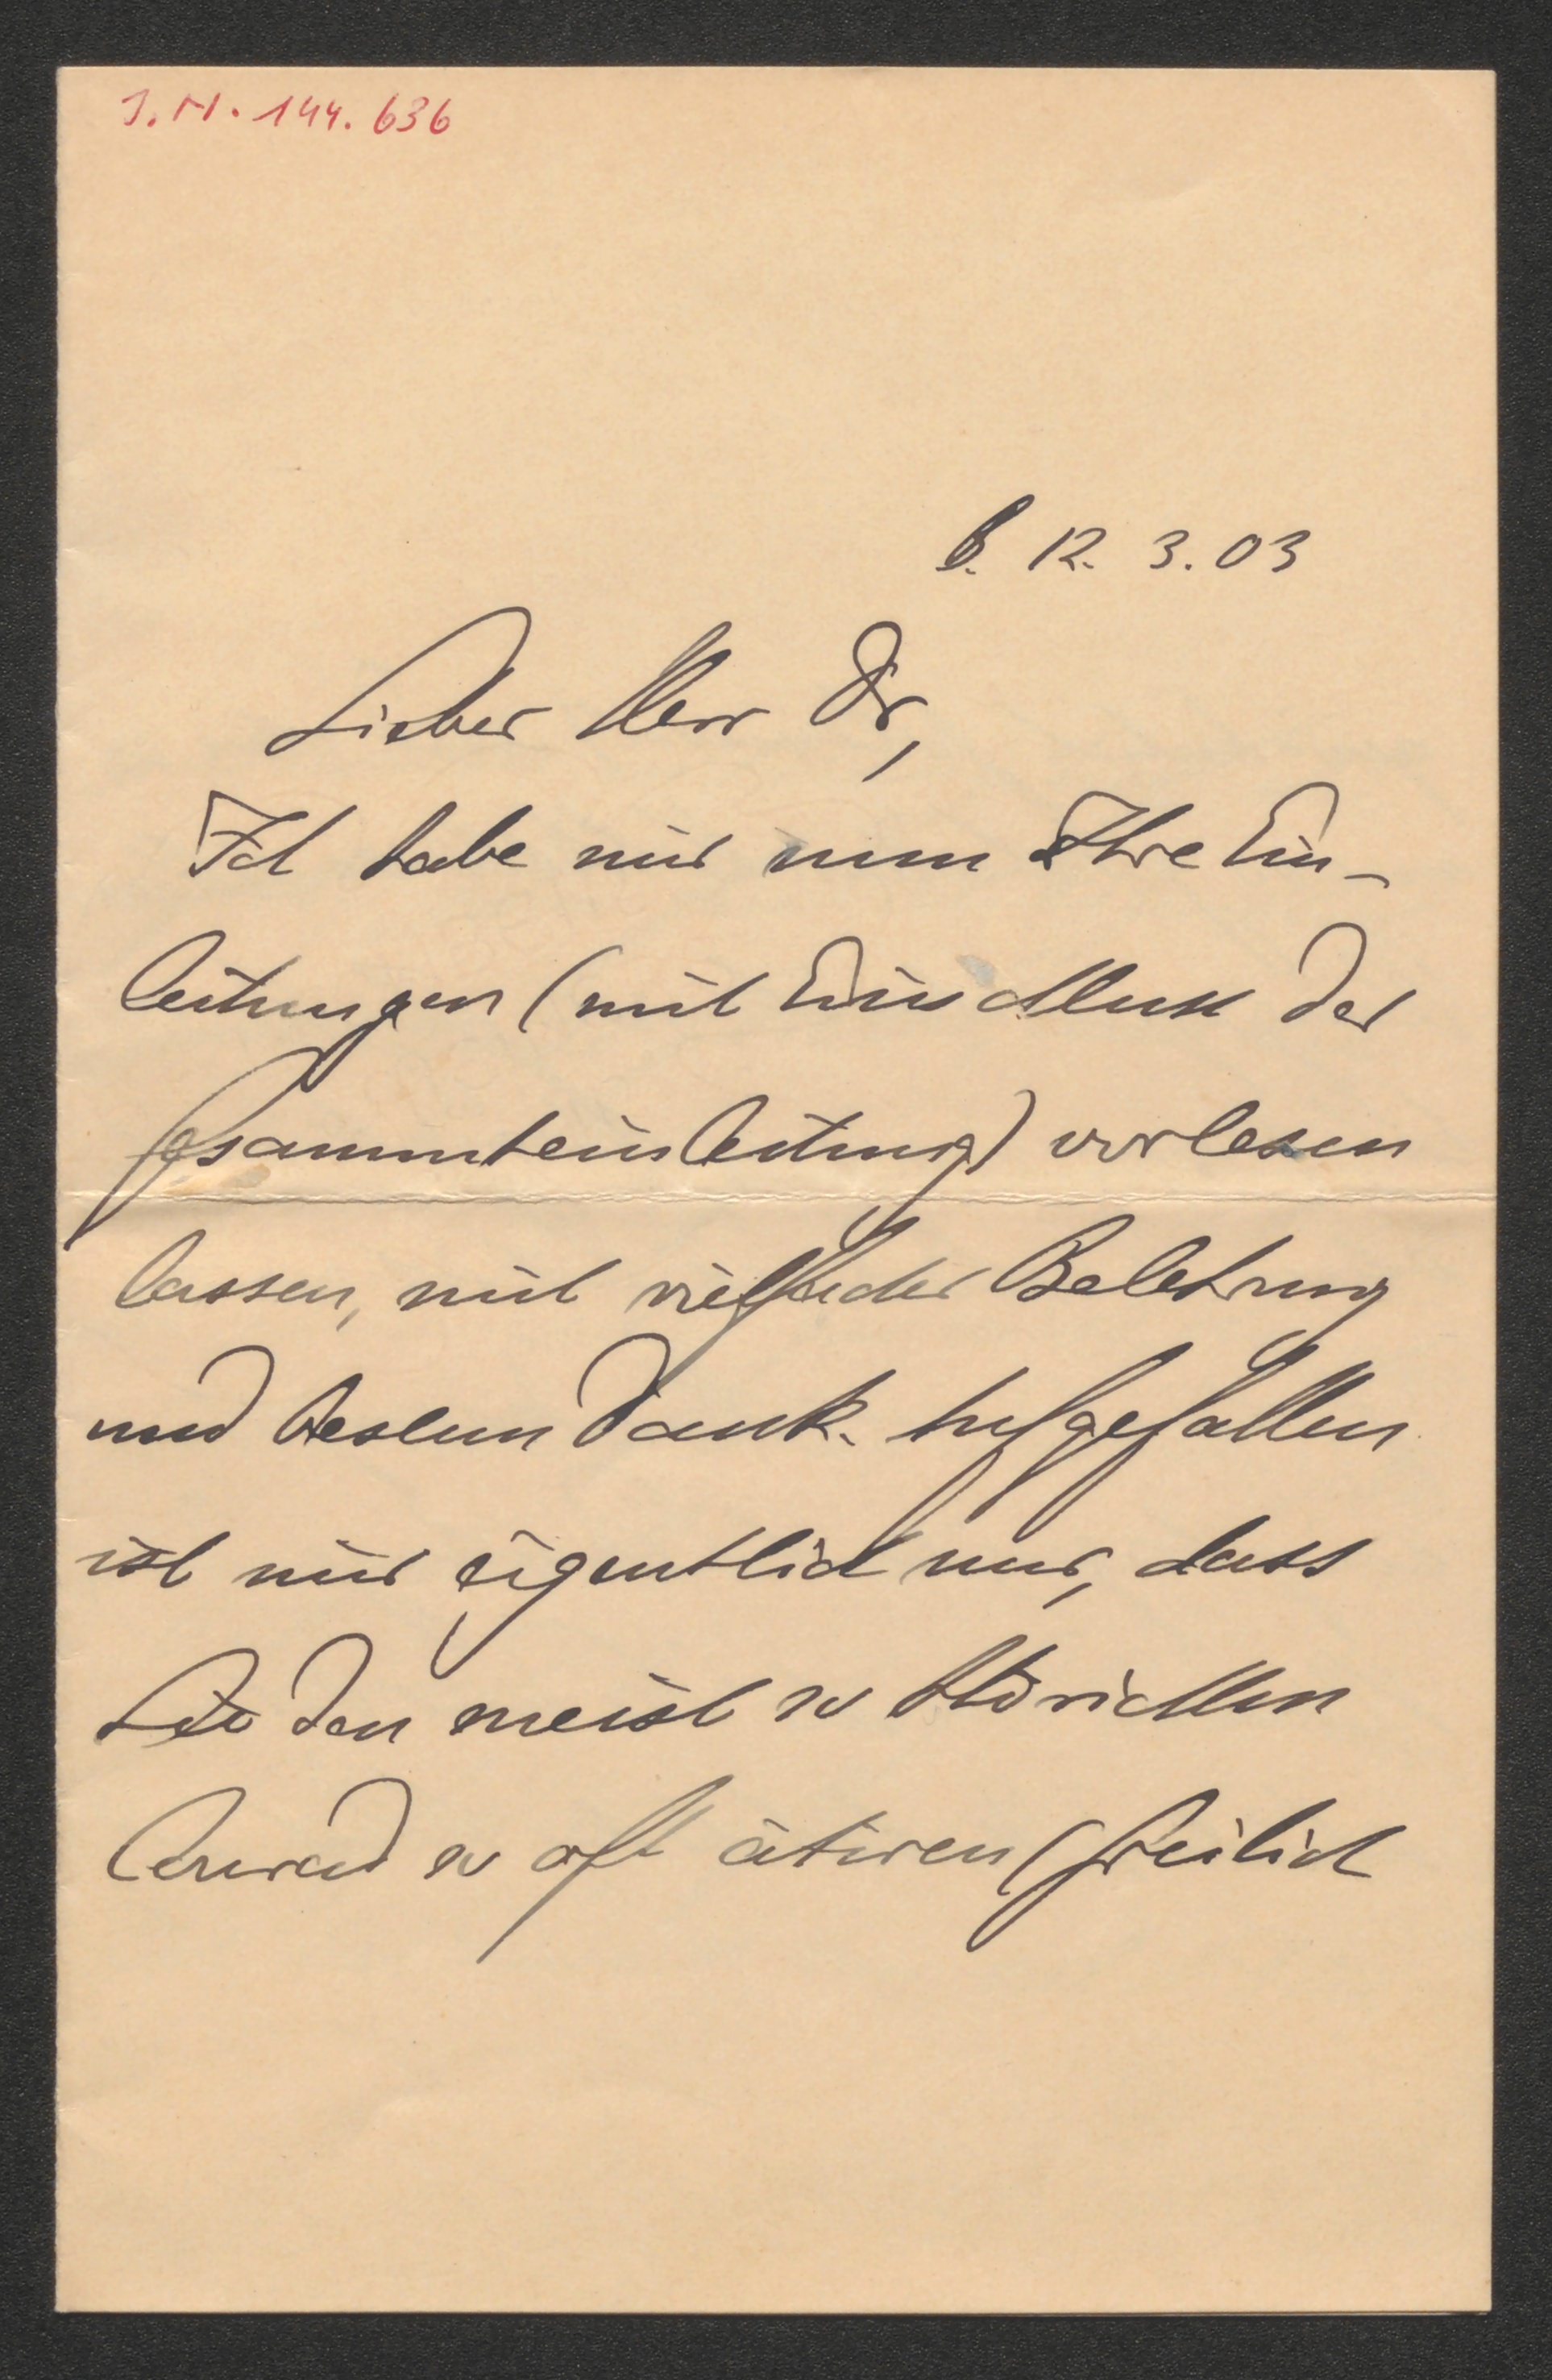 J.N. 144.636
B. 12. 3. 03
Lieber Herr Dr,
Ich habe mir nun Ihre Ein-
leitungen (mit Einschluss der
Gesammteinleitung) vorlesen
lassen, mit vielfacher Belehrung
und bestem Dank. Aufgefallen
ist mir eigentlich nur, dass
Sie den meist so thörichten
Conrad so oft citiren (freilich